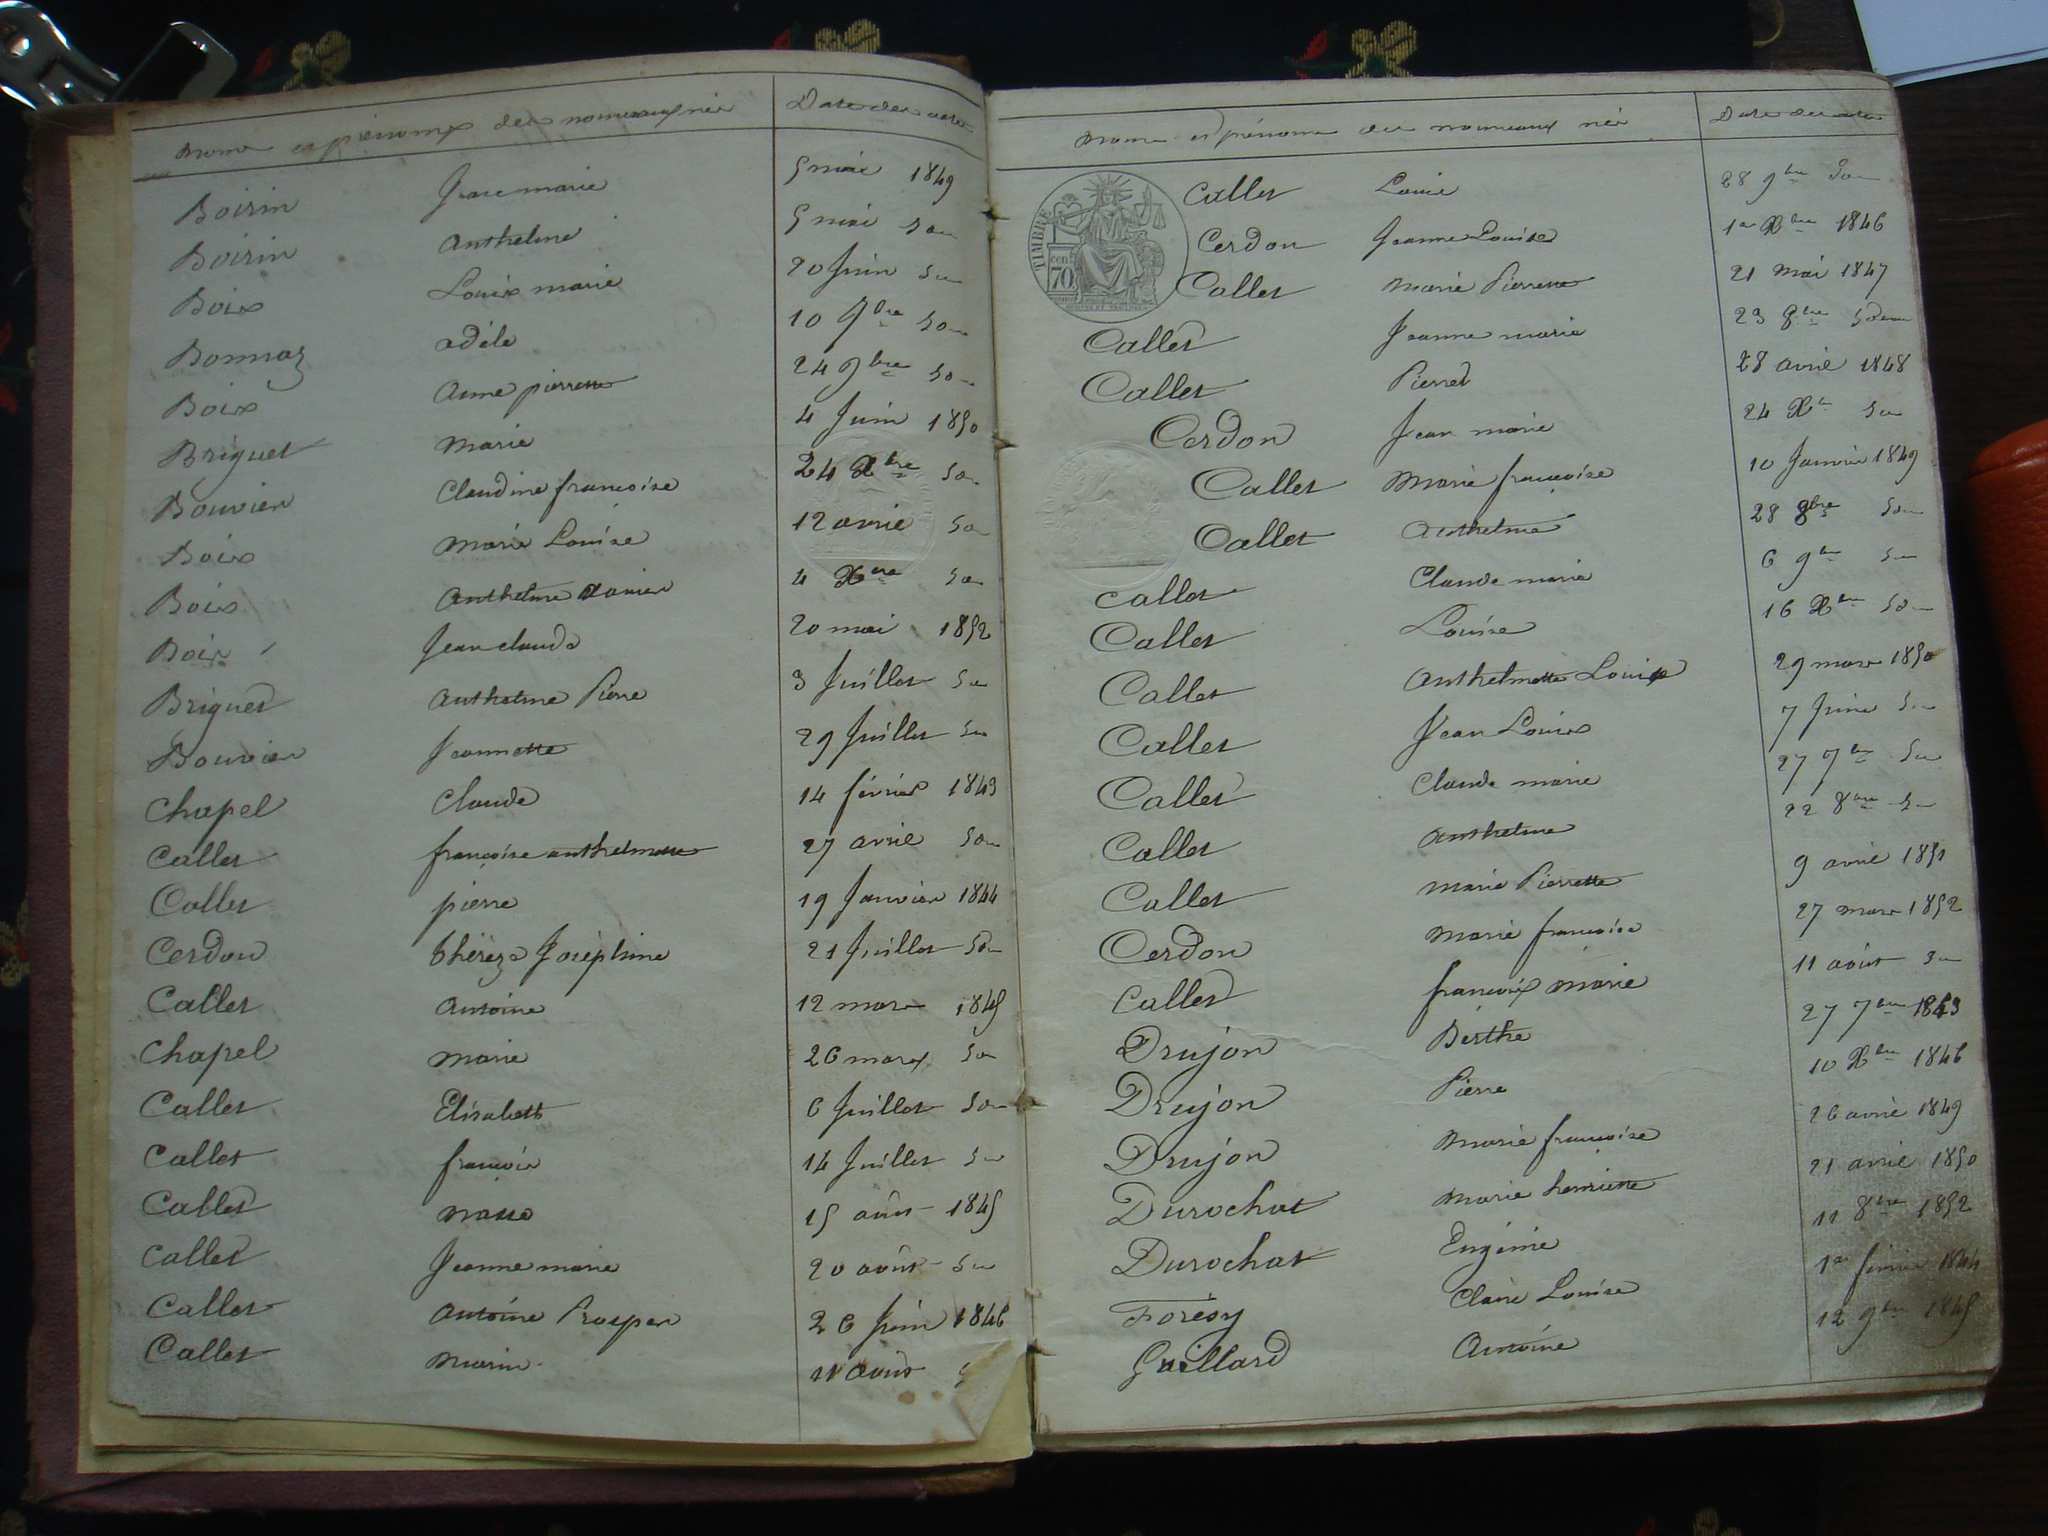 Noms et prénoms des nouveaux nés Date des actes
Boirin Jean marie 5 mai 1849
Boirin Anthelme 5 mai do
Boix Louis marie 20 Juin do
Bonnaz adèle 10 9bre do
Boix Anne pierrette 24 9bre do
Briguet Marie 4 Juin 1850
Bouvier Claudine françoise 24 Xbre do
Boix Marie Louise 12 avril do
Boix Anthelme Xavier 4 Xbre do
Boix Jean claude 20 mai 1852
Briguet Anthelme Pierre 3 Juillet do
Bouvier Jeannette 29 Juillet do
Chapel Claude 14 février 1843
Callet françoise anthelmette 27 avril do
Callet pierre 19 Janvier 1844
Cerdon thérèze Joséphine 21 Juillet do
Callet Antoine 12 mars 1845
Chapel marie 26 mars do
Callet Elisabeth 6 Juillet do
Callet françois 14 Juillet do
Callet 15 aôut 1845
Callet Jeanne marie 20 août do
Callet Antoine Prosper 26 Juin 1846
Callet Marin 11 août
Noms et prénoms des nouveaux nés Date des actes
TIMBRE
70
Callet Louis 28 9bre do
Cerdon Jeanne Louise 1er Xbre 1846
Callet Marie Pierrette 21 mai 1847
Callet Jeanne marie 23 8bre do
Callet Pierre 28 avril 1848
Cerdon Jean marie 24 Xbre do
Callet Marie françoise 10 Janvier 1849
Callet Anthelme 28 8bre do
Callet Claude marie 6 9bre do
Callet Louise 16 Xbre do
Callet Anthelmette Louise 29 mars 1850
Callet Jean Louis 7 Juin do
Callet Claude marie 27 7bre do
Callet Anthelme 22 8bre do
Callet Marie Pierrette 9 avril 1851
Cerdon Marie françoise 27 mars 1852
Callet françois marie 11 août do
Drujon Berthe 27 7bre 1843
Drujon Pierre 10 Xbre 1846
Drujon Marie françoise 26 avril 1849
Durochat Marie henriette 21 avril 1850
Durochat Eugénie 11 8bre 1852
Forésy Claire Louise 1er février 1844
Gaillard Antoine 12 9bre 1845